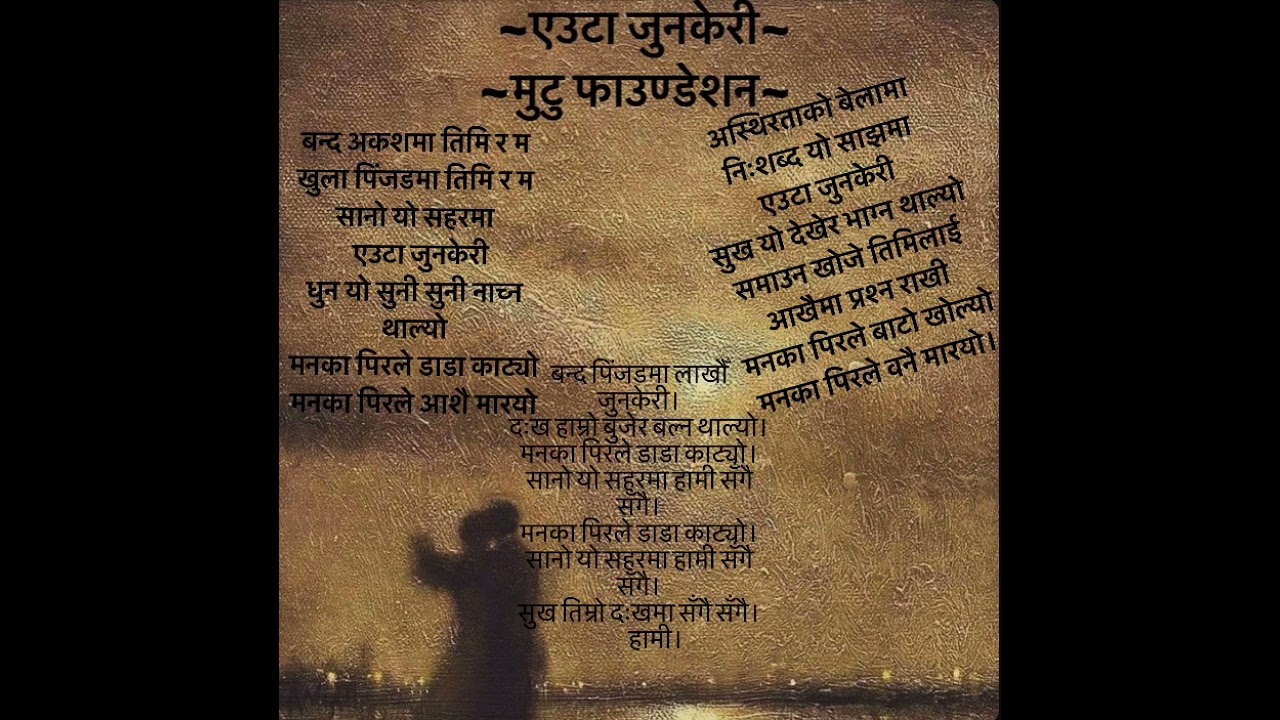 ~एउटा जुनकेरी~
~मुटु फाउण्डेशन~
बन्द अकशमा तिमि र म
खुला पिंजडमा तिमि र म
सानो यो सहरमा
एउटा जुनकेरी
धुन यो सुनी सुनी नाच्न
थाल्यो
मनका पिरले डाडा काट्यो
मनका पिरले आशै मारयो
अस्थिरताको बेलामा
निःशब्द यो साझमा
एउटा जुनकेरी
सुख यो देखेर भाग्न थाल्यो
समाउन खोजे तिमिलाई
आखैमा प्रश्न राखी
मनका पिरले बाटो खोल्यो
मनका पिरले वनै मारयो।
बन्द पिंजडमा लाखौं
जुनकेरी।
दःख हाम्रो बुजेर बल्न थाल्यो।
मनका पिरले डाडा काट्यो।
सानो यो सहरमा हामी सँगै
सँगै।
मनका पिरले डाडा काट्यो।
सानो यो सहरमा हामी सँगै
सँगै।
सुख तिम्रो दःखमा सँगै सँगै।
हामी।